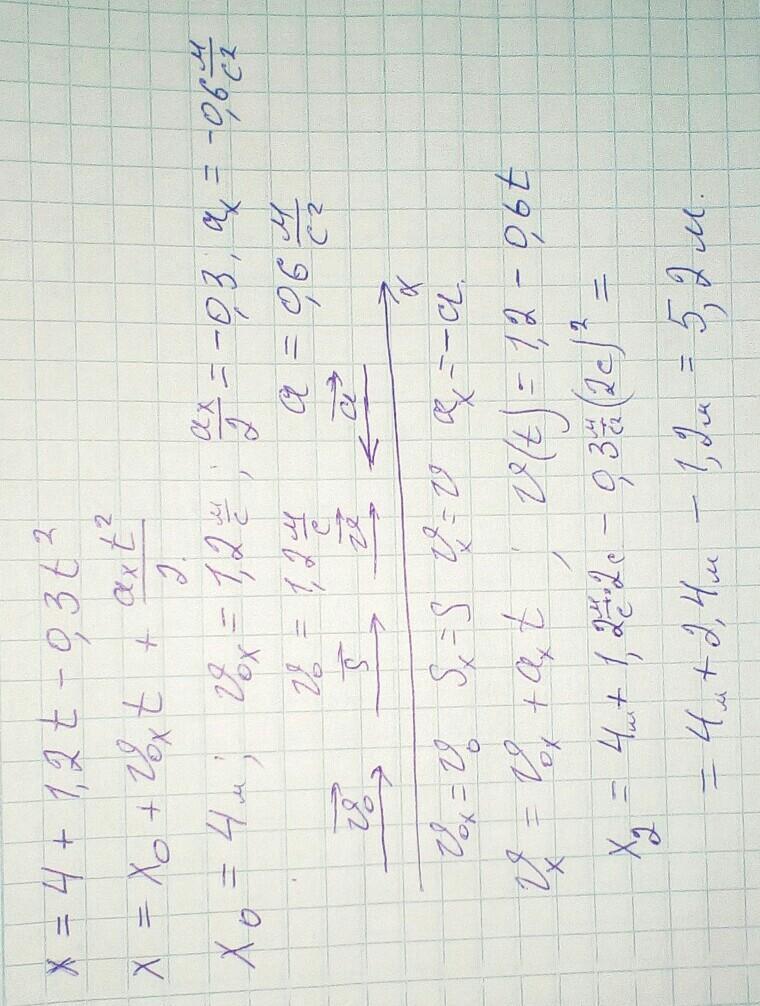 x = 4 + 1,2t - 0,3t²
x = x₀ + v₀ₓt + aₓt²/2
x₀ = 4м; v₀ₓ = 1,2 м/с; aₓ/2 = -0,3; aₓ = -0,6 м/с²
v₀ = 1,2 м/с a = 0,6 м/с²
v⃗₀ s⃗ v⃗ a⃗
x
v₀ₓ = v₀ sₓ = s vₓ = v aₓ = -a.
vₓ = v₀ₓ + aₓt ; v(t) = 1,2 - 0,6t
x₂ = 4м + 1,2 м/с·2с - 0,3 м/с²(2с)² =
= 4м + 2,4м - 1,2м = 5,2м.